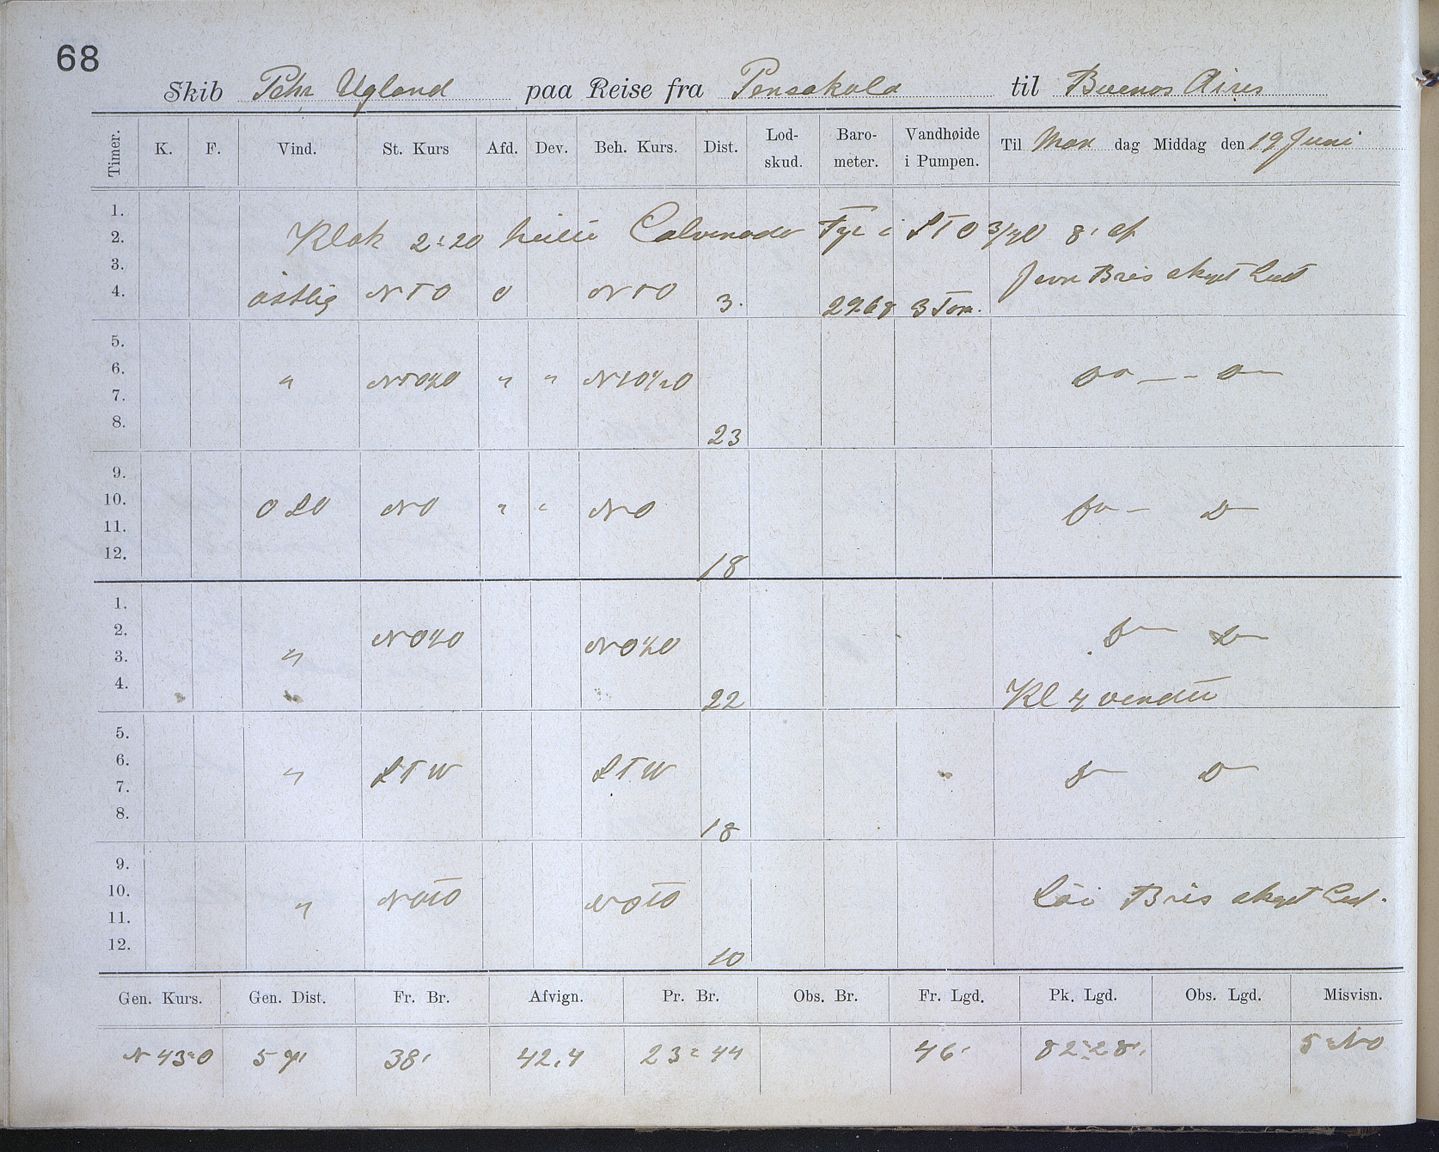 68
Skib Pehr Ugland paa Reise fra Pensakola til Buenos Aires
Timer. K. F. Vind. St. Kurs Afd. Dev. Beh. Kurs. Dist. Lod-skud. Baro-meter. Vandhøide i Pumpen. Til Man dag Middag den 19 Juni
1.
2. Klok 2:20 Fyr i 8' af
3.
4. östlig NTO 0 NTO 3. 2968 3 Tom. Jevn Bris skyet Luft
5.
6. " NTO½O " " NTO½O
7.
8. 23
9.
10. OSO NO " " NO
11.
12. 18
1.
2. NO½O NO½O
3. "
4. 22 Kl 4 vendte
5.
6. " STW STW
7.
8. 18
9.
10. " NOTO NOTO Löi Bris skyet Luft.
11.
12. 10
Gen. Kurs. Gen. Dist. Fr. Br. Afvign. Pr. Br. Obs. Br. Fr. Lgd. Pk. Lgd. Obs. Lgd. Misvisn.
N 43°O 38' 42,4 23° 44 46' 82° 28' 5° NO